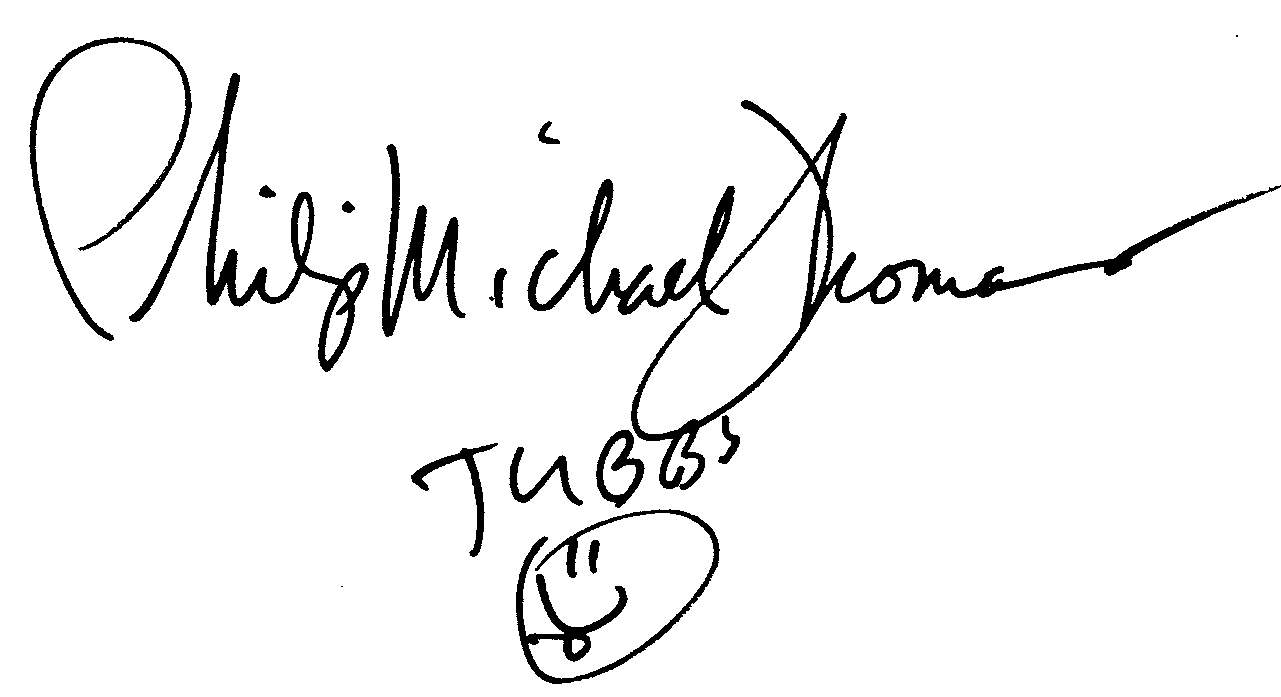 Philip Michael Thomas
TUBBS